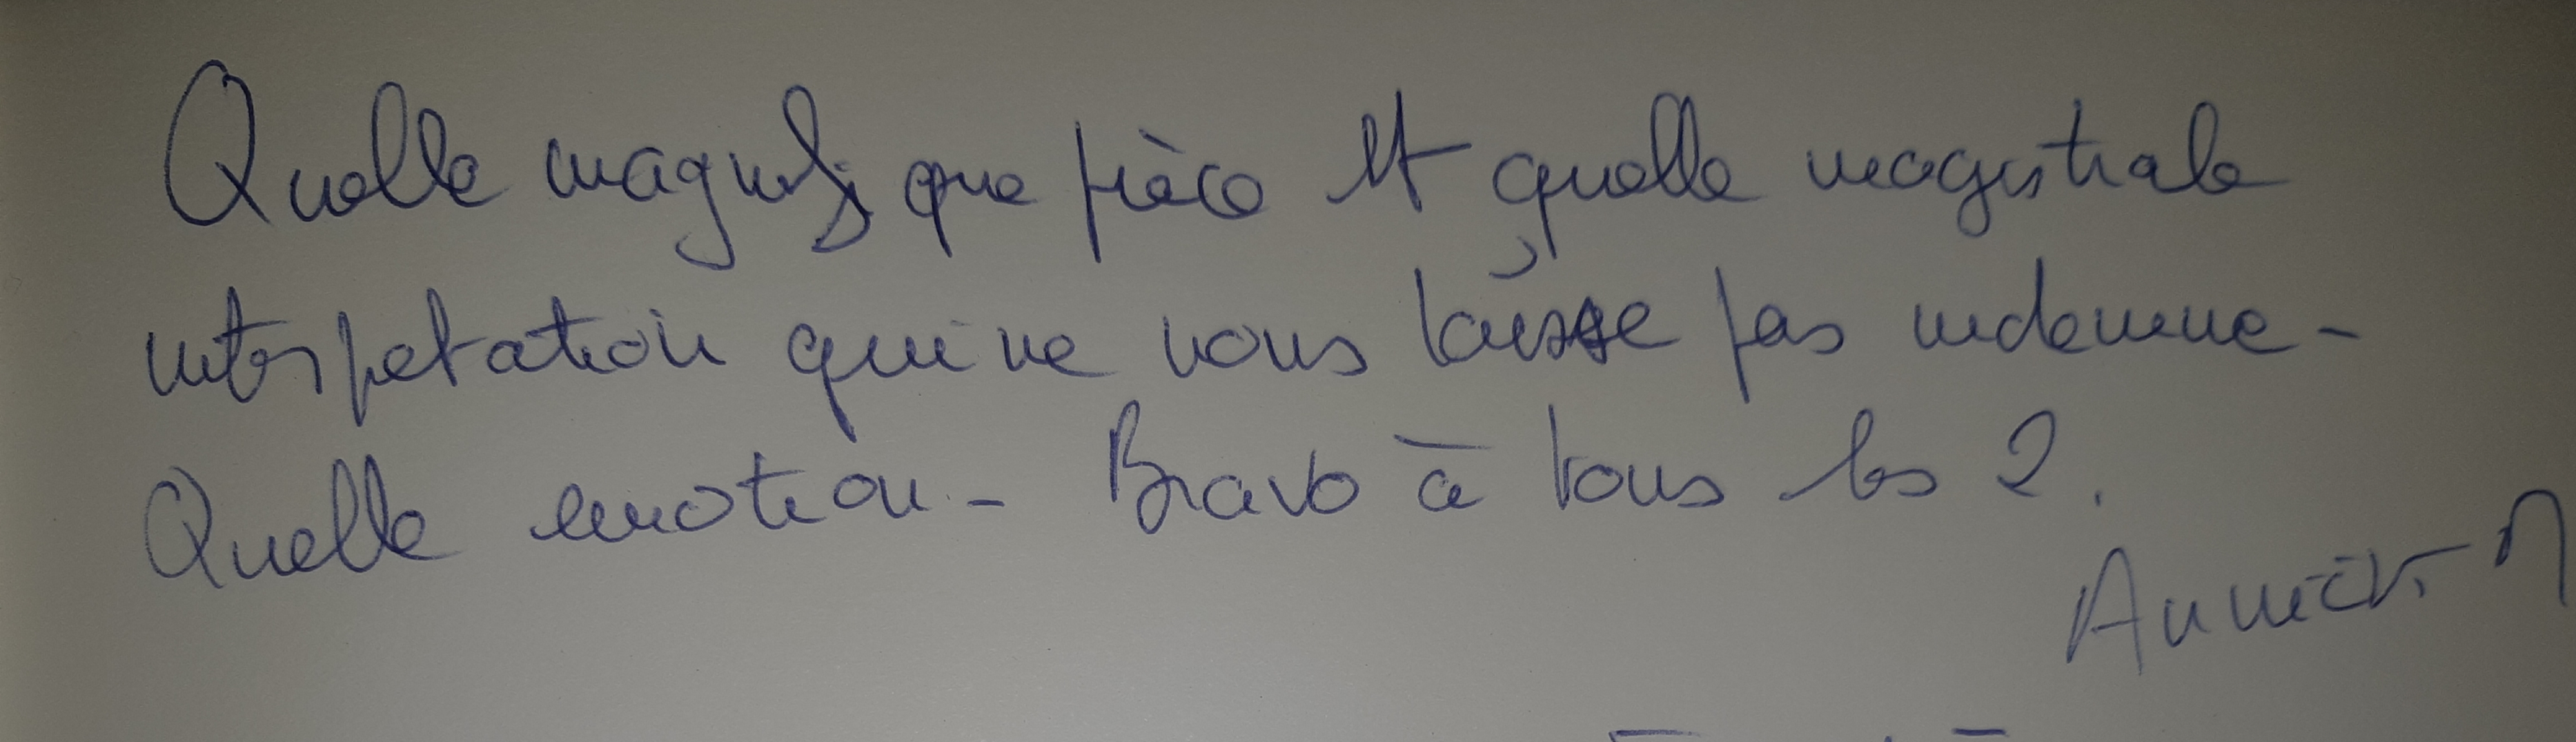 Quelle magnifique pièce et quelle magistrale
interpetation qui ne vous laisse pas indemne -
Quelle emotion - Bravo à tous les 2.